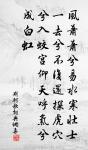 風蕭蕭兮易水寒壯士
一去兮不復還探虎穴
兮入蛟宮仰天呼氣兮
成白虹